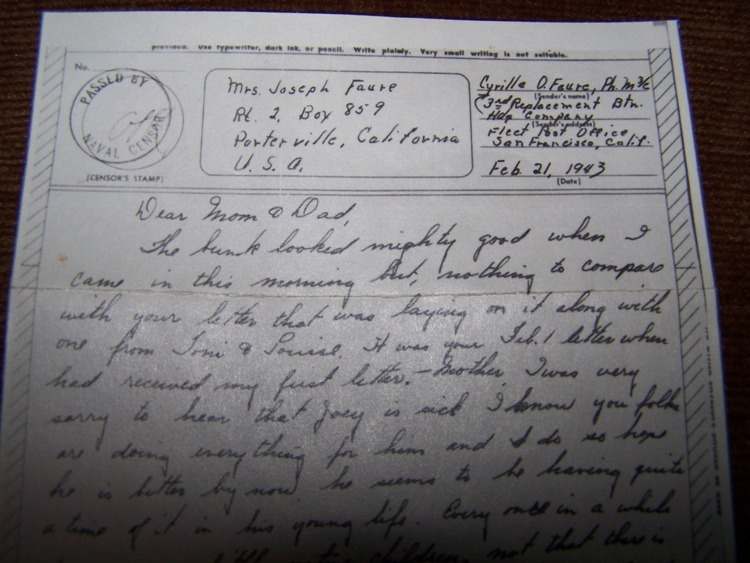 provided. Use typewriter, dark ink, or pencil. Write plainly. Very small writing is not suitable.
No.
PASSED BY
NAVAL CENSOR
(CENSOR'S STAMP)
Mrs. Joseph Faure
Rt. 2, Box 859
Porterville, California
U. S. A.
Cyrille O. Faure, Ph. M 3/c
(Sender's name)
3rd Replacement Btn.
Hdq Company
(Sender's address)
Fleet Post Office
San Francisco, Calif.
Feb. 21, 1943
(Date)
Dear Mom & Dad,
The bunk looked mighty good when I
came in this morning but, nothing to compare
with your letter that was laying on it along with
one from Toni & Louise. It was your Feb. 1 letter when
had received my first letter. - Mother I was very
sorry to hear that Joey is sick I know you folks
are doing everything for him and I do so hope
he is better by now he seems to be having quite
a time of it in his young life. Every once in a while
children, not that there is